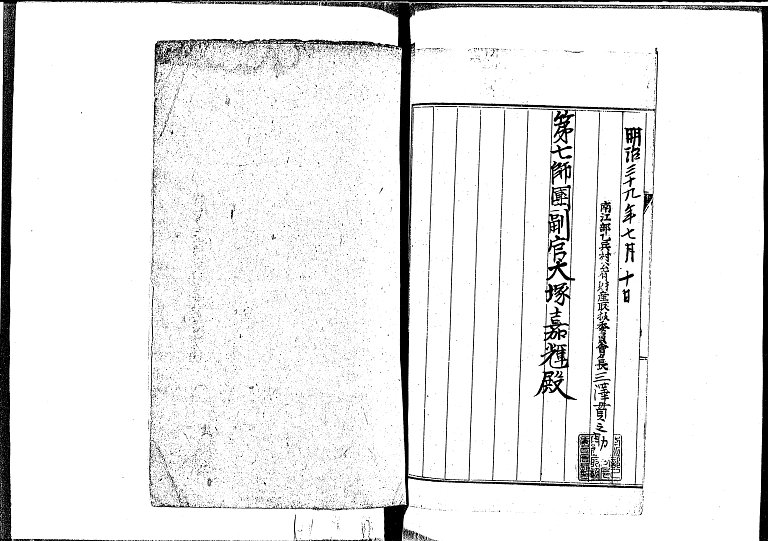 明治三十九年七月十日
南江部乙兵村公有財産取扱委員會長三澤貫之助
第七師團副官大塚嘉輝殿